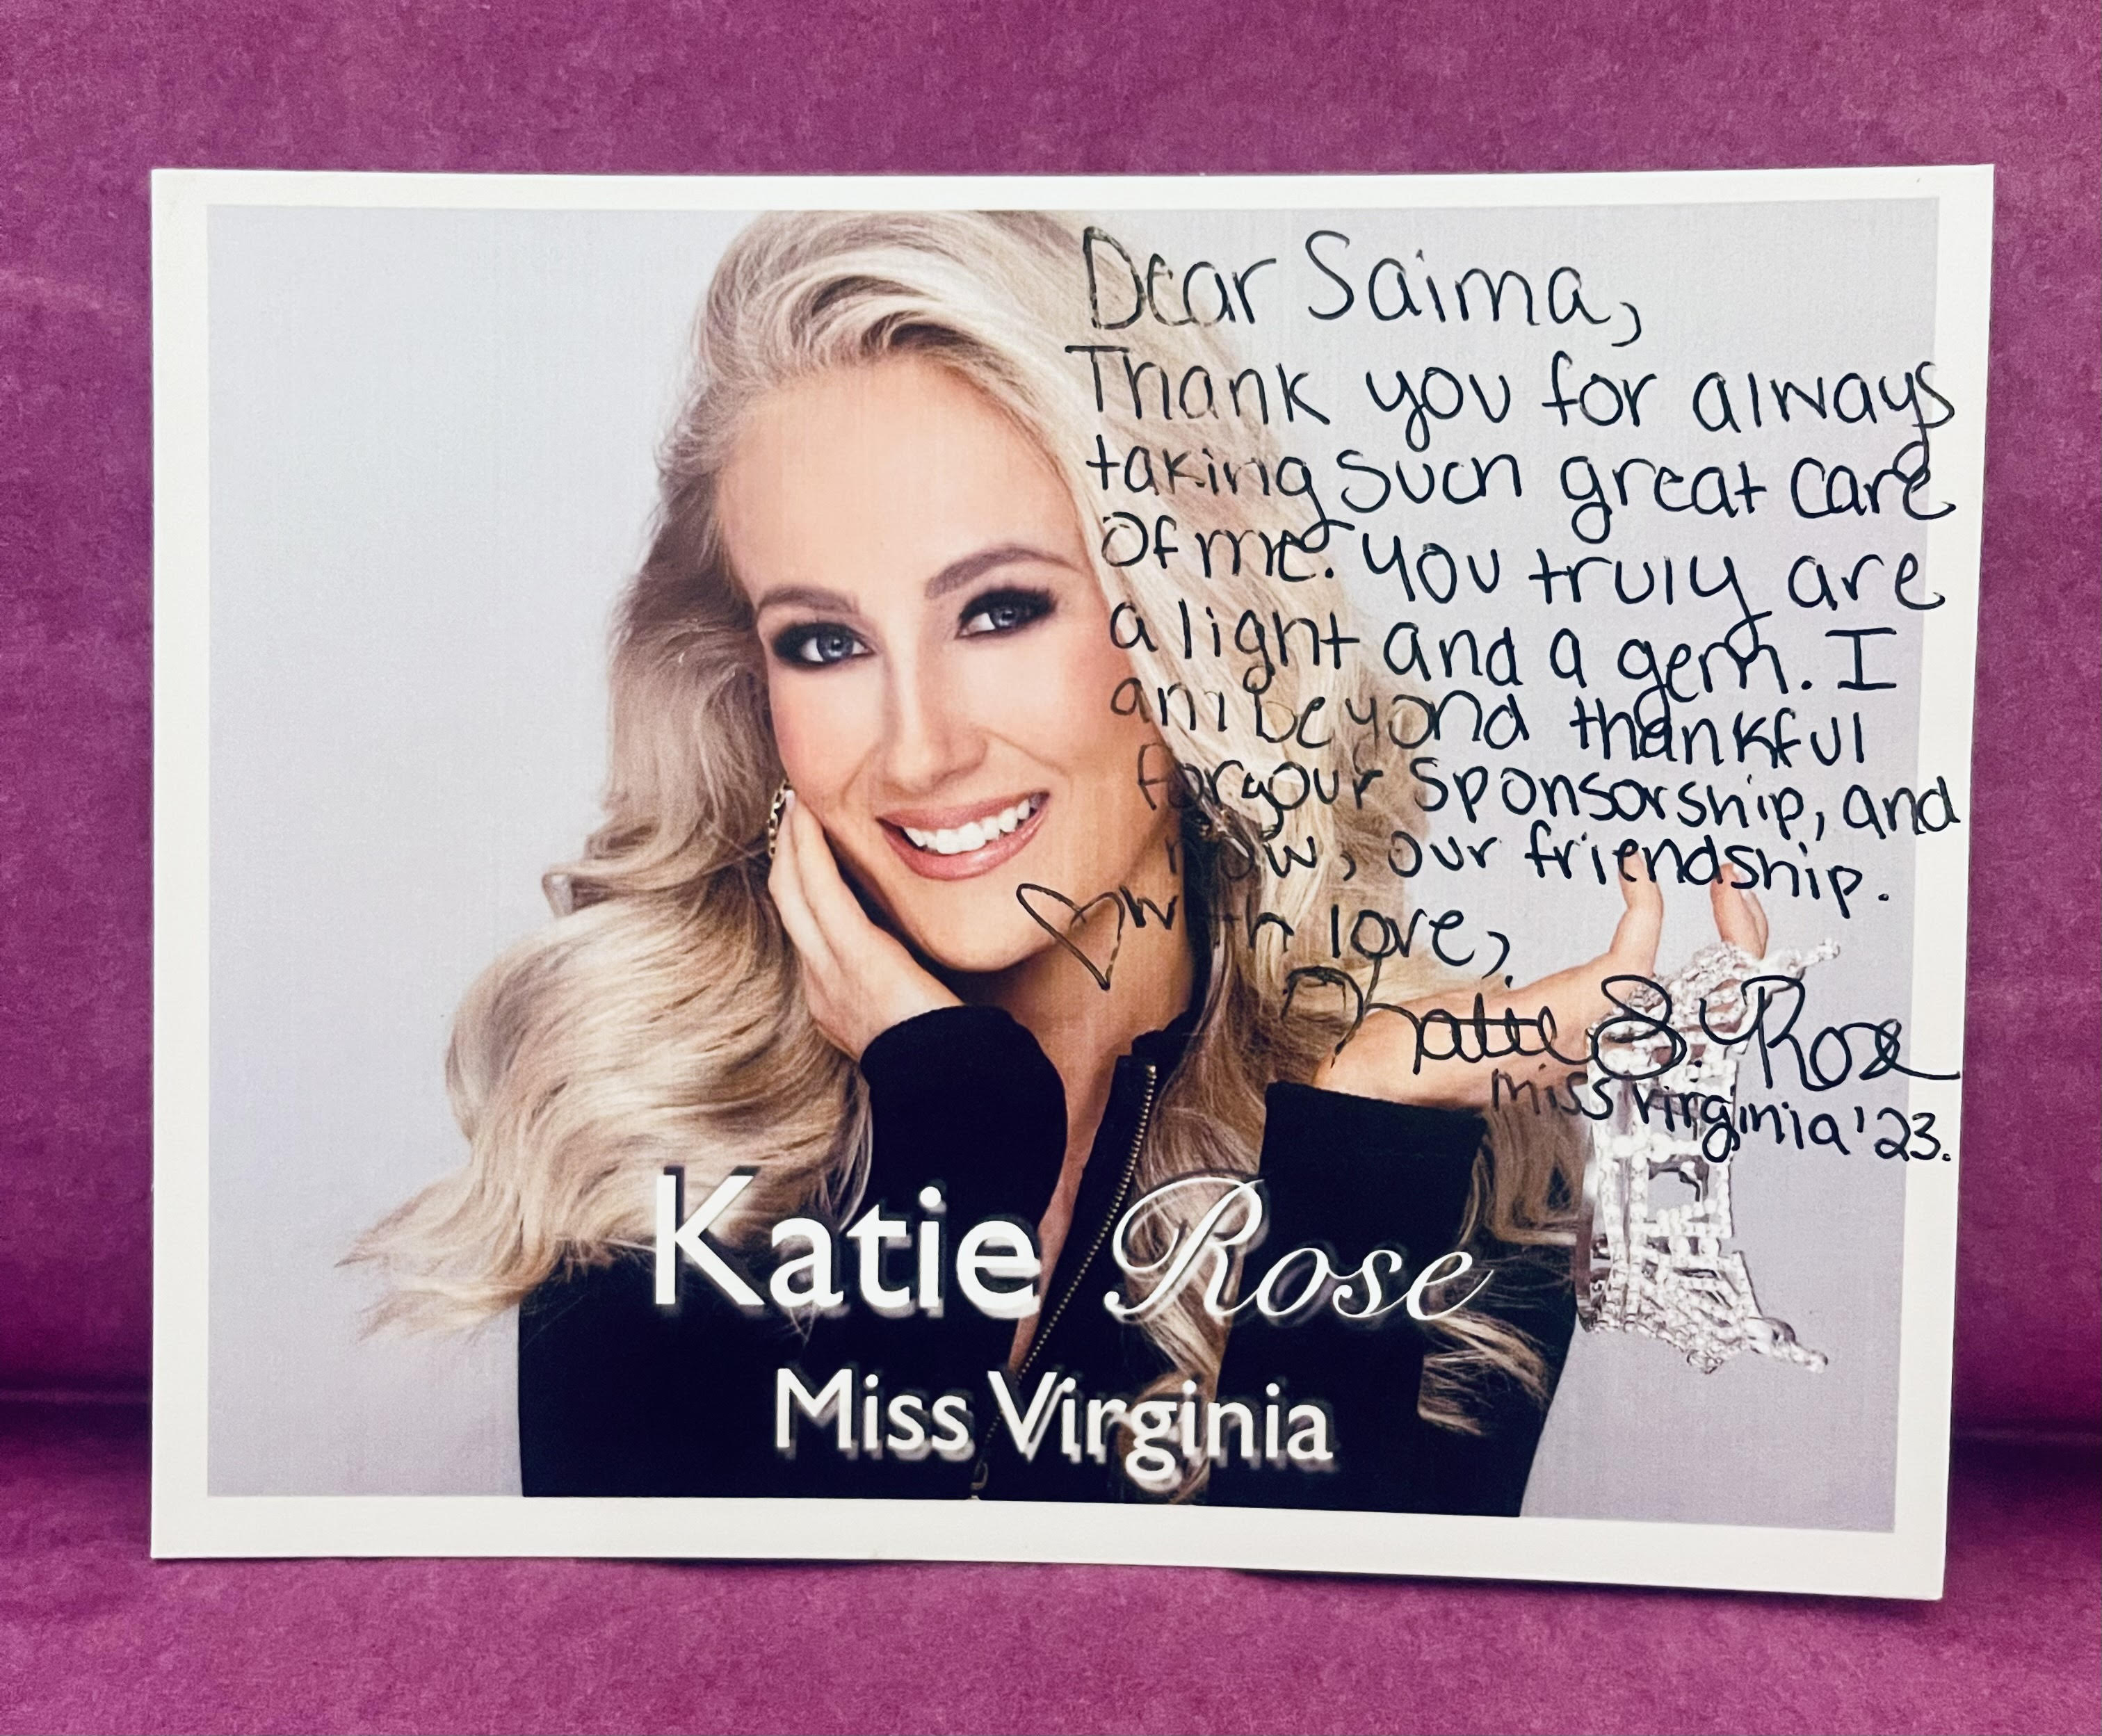 Dear Saima,
Thank you for always
taking such great care
of me. You truly are
a light and a gem. I
am beyond thankful
for your sponsorship, and
now, our friendship.
♡ with love,
Katie G. Rose
miss virginia '23.
Katie Rose
Miss Virginia